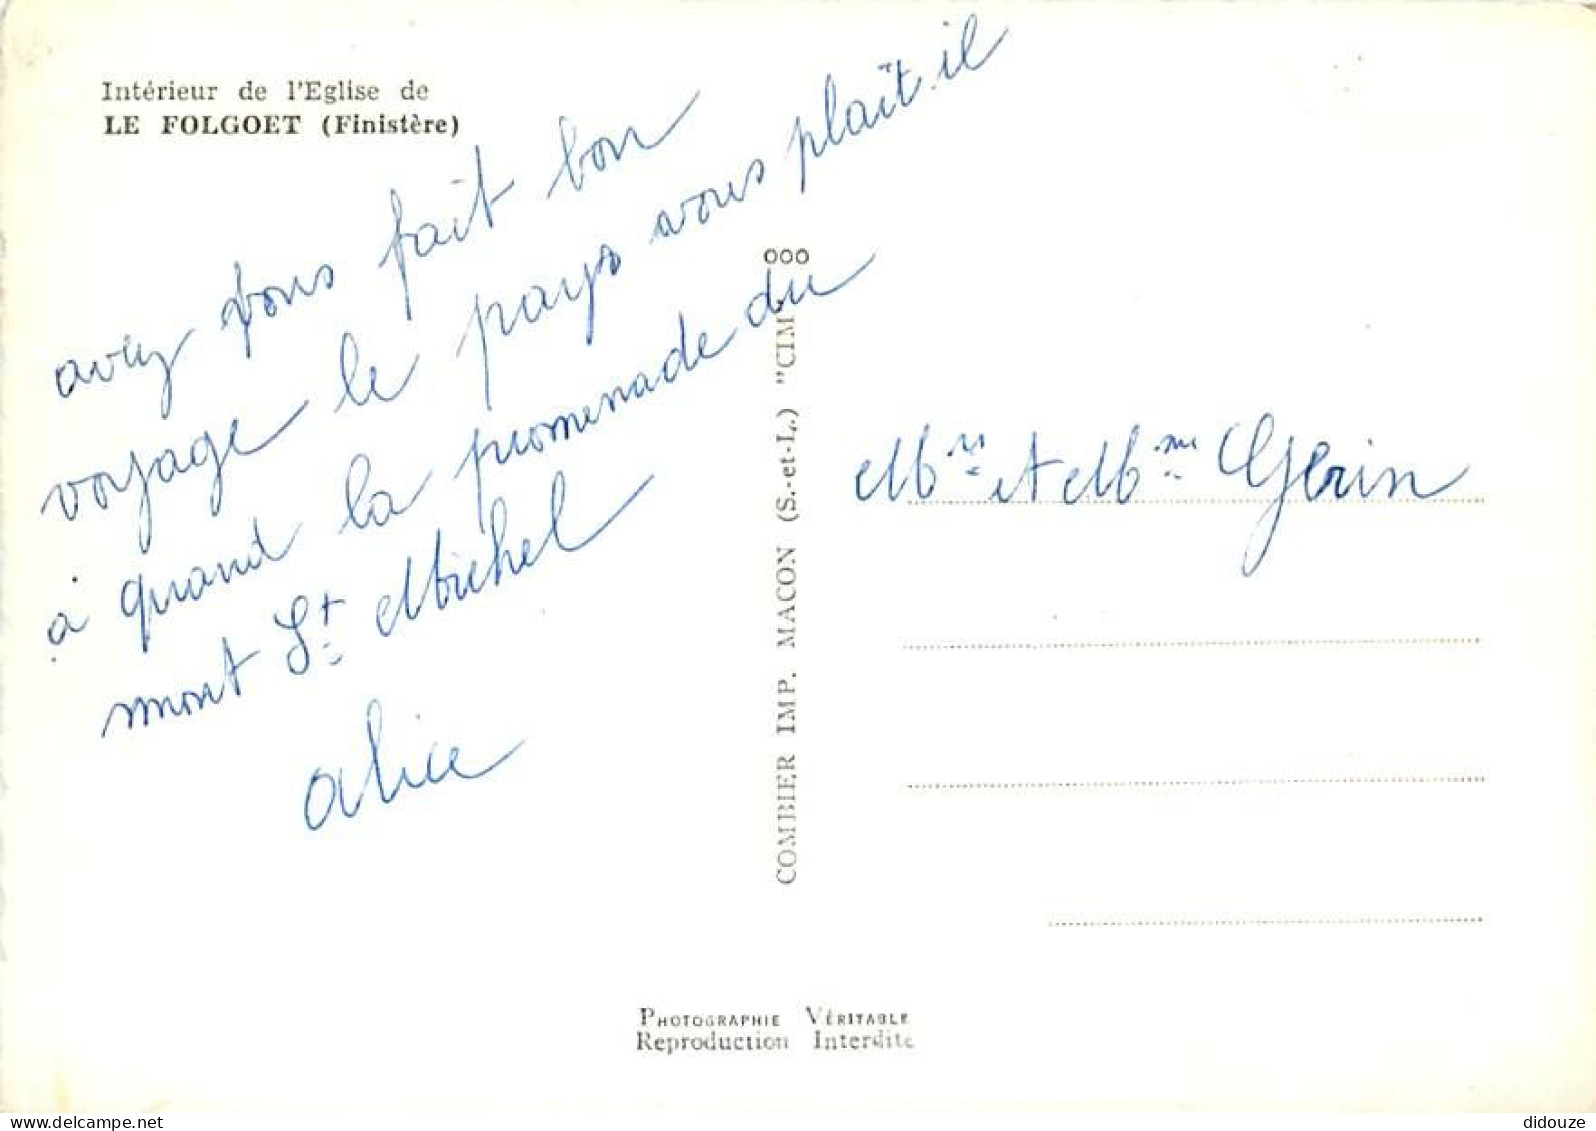 Intérieur de l'Eglise de
LE FOLGOET (Finistère)
avez vous fait bon
voyage le pays vous plaît-il
à quand la promenade du
mont St Michel
alice
ooo
COMBIER IMP. MACON (S.-et-L.) "CIM"
Mrs et Mme Gerin
PHOTOGRAPHIE VÉRITABLE
Reproduction Interdite
delcampe.net
didouze